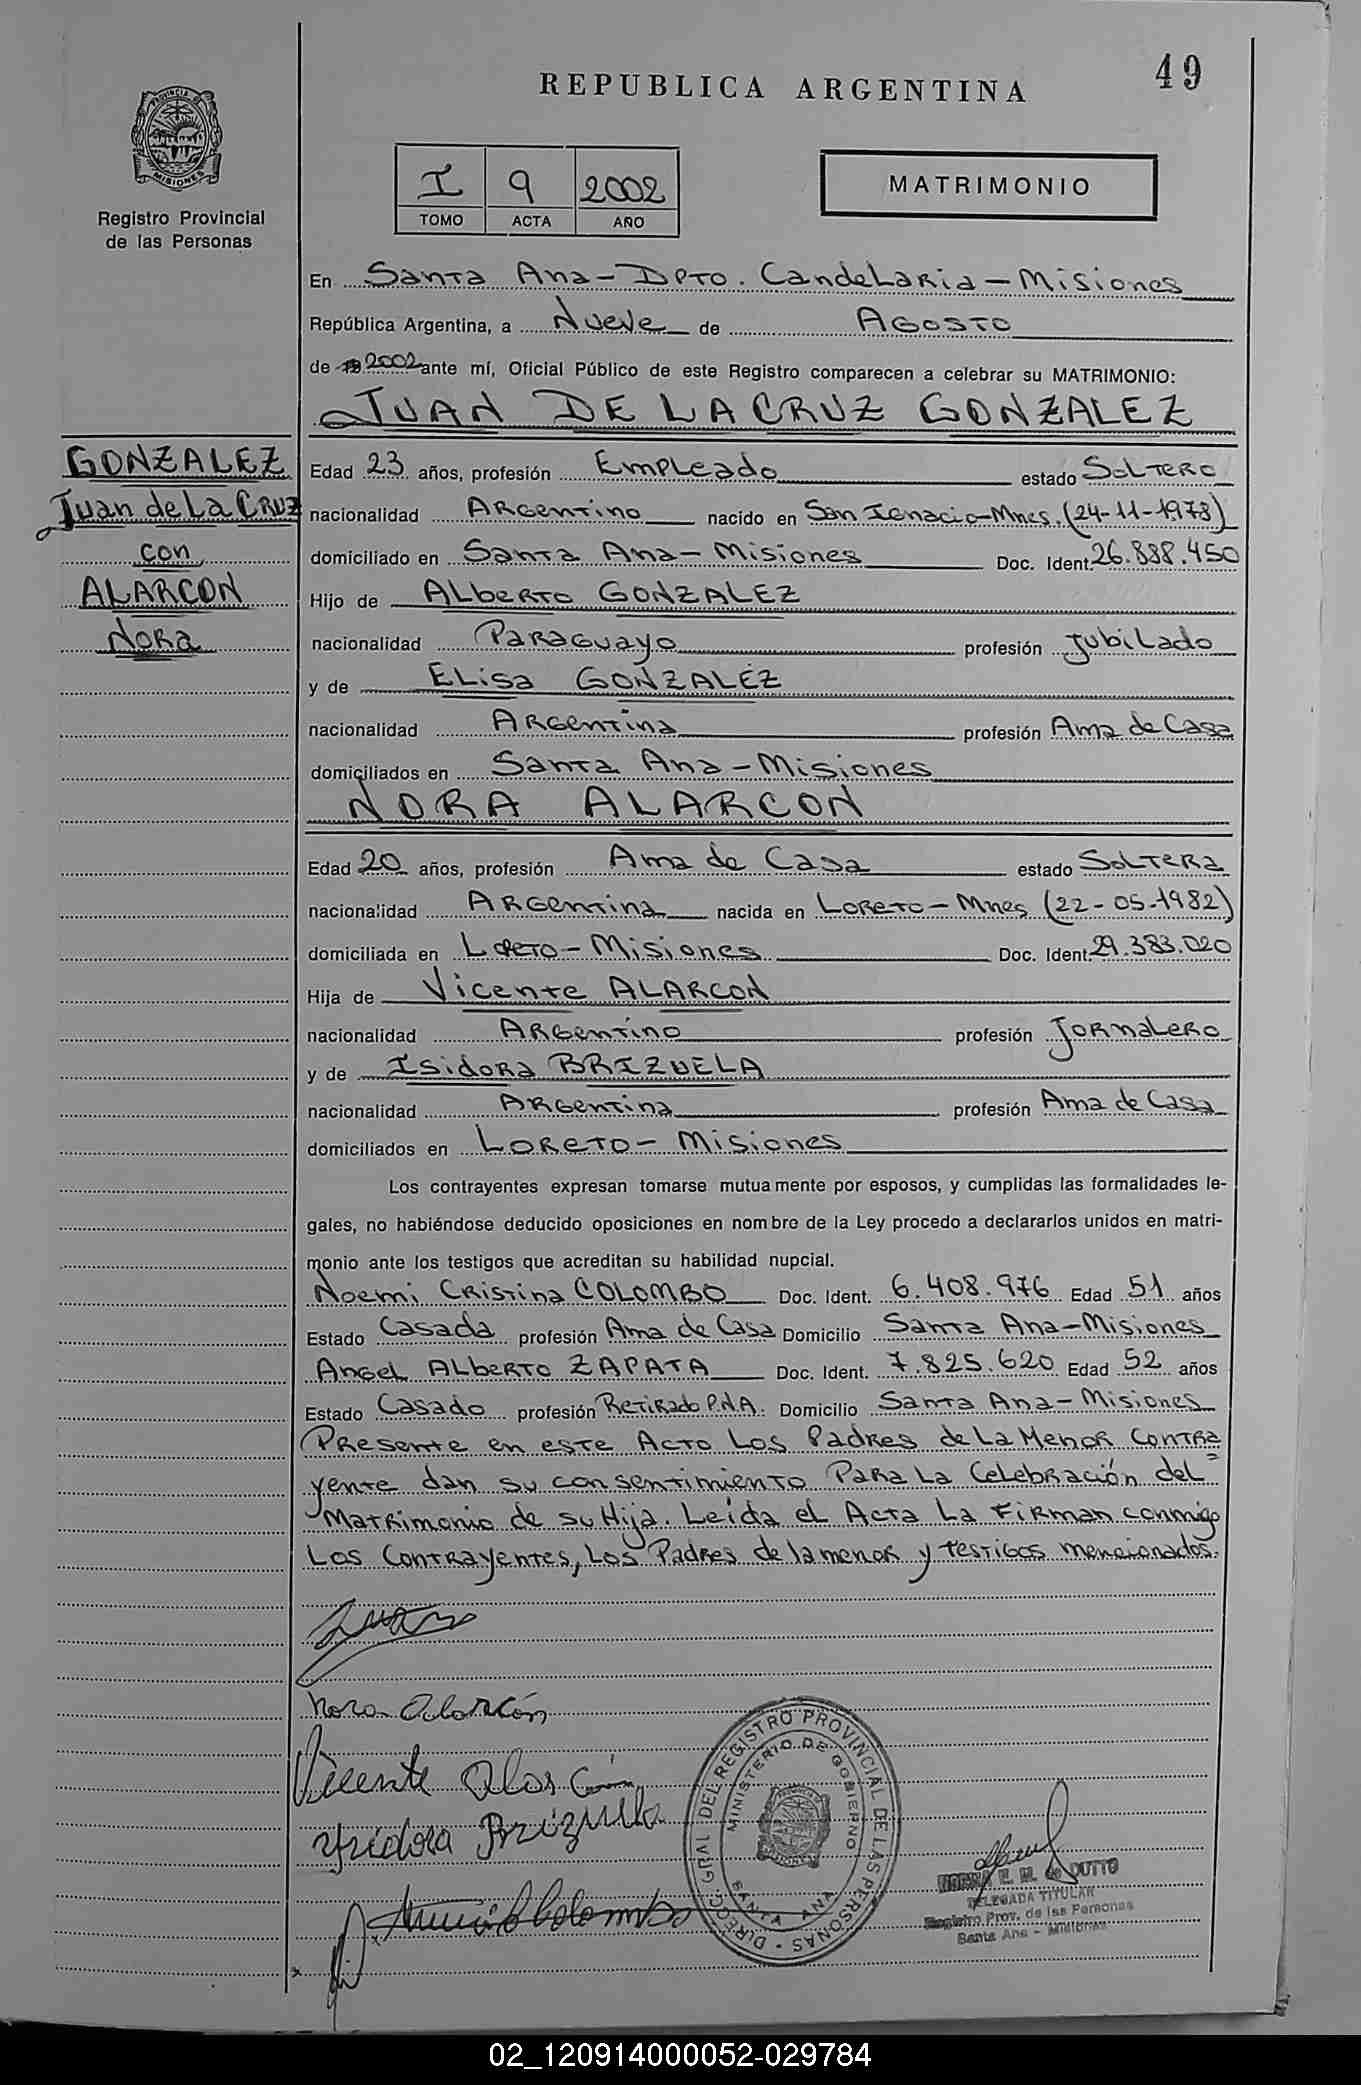 49
REPUBLICA ARGENTINA
PROVINCIA DE
MISIONES
Registro Provincial
de las Personas
I 9 2002
TOMO ACTA AÑO
MATRIMONIO
En Santa Ana - Dpto. Candelaria - Misiones
República Argentina, a Nueve de Agosto
de 19 2002 ante mí, Oficial Público de este Registro comparecen a celebrar su MATRIMONIO:
JUAN DE LA CRUZ GONZALEZ
GONZALEZ
Juan de La Cruz
con
ALARCON
Nora
Edad 23 años, profesión Empleado estado Soltero
nacionalidad Argentino nacido en San Ignacio-Mnes. (24-11-1978)
domiciliado en Santa Ana - Misiones Doc. Ident. 26.838.450
Hijo de Alberto GONZALEZ
nacionalidad Paraguayo profesión Jubilado
y de Elisa GONZALEZ
nacionalidad Argentina profesión Ama de Casa
domiciliados en Santa Ana - Misiones
NORA ALARCON
Edad 20 años, profesión Ama de Casa estado Soltera
nacionalidad Argentina nacida en Loreto - Mnes (22-05-1982)
domiciliada en Loreto - Misiones Doc. Ident. 29.383.020
Hija de Vicente ALARCON
nacionalidad Argentino profesión Jornalero
y de Isidora BRIZUELA
nacionalidad Argentina profesión Ama de Casa
domiciliados en Loreto - Misiones
Los contrayentes expresan tomarse mutuamente por esposos, y cumplidas las formalidades le-
gales, no habiéndose deducido oposiciones en nombre de la Ley procedo a declararlos unidos en matri-
monio ante los testigos que acreditan su habilidad nupcial.
Noemi Cristina COLOMBO Doc. Ident. 6.408.976 Edad 51 años
Estado Casada profesión Ama de Casa Domicilio Santa Ana - Misiones
Angel Alberto ZAPATA Doc. Ident. 7.825.620 Edad 52 años
Estado Casado profesión Retirado P.N.A. Domicilio Santa Ana - Misiones
Presente en este Acto Los Padres de La Menor Contra=
yente dan su consentimiento Para La Celebración del
Matrimonio de su Hija. Leída el Acta La Firman conmigo
Los Contrayentes, Los Padres de la menor y testigos mencionados.
Juan
Nora Alarcón
Vicente Alarcón
Ysidora Brizuela
Colombo
DIRECC. GRAL DEL REGISTRO PROVINCIAL DE LAS PERSONAS
MINISTERIO DE GOBIERNO
SANTA ANA
NORMA E. M. de DUTTO
DELEGADA TITULAR
Registro Prov. de las Personas
Santa Ana - Misiones
02_120914000052-029784